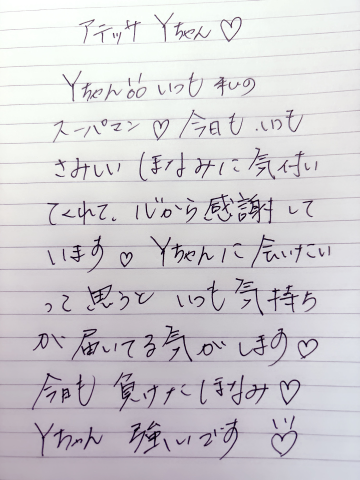 アテッサ Yちゃん♡
Yちゃん!! いつも 私の
スーパマン♡ 今日も いつも
さみしい ほなみに 気付い
てくれて、心から感謝して
います♡ Yちゃんに 会いたい
って 思うと いつも 気持ち
が 届いてる気がします♡
今日も 負けたほなみ♡
Yちゃん 強いです ♡